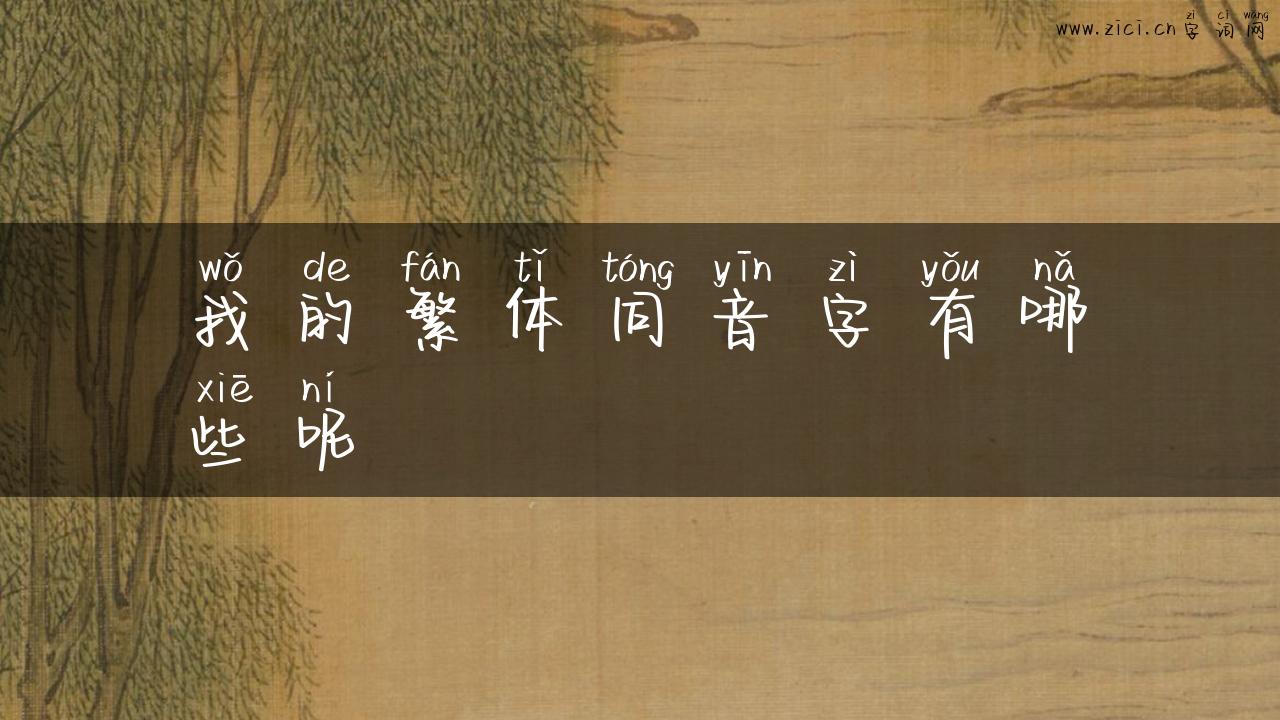 zì cí wǎng
www.zici.cn 字 词 网
wǒ de fán tǐ tóng yīn zì yǒu nǎ
我 的 繁 体 同 音 字 有 哪
xiē ní
些 呢